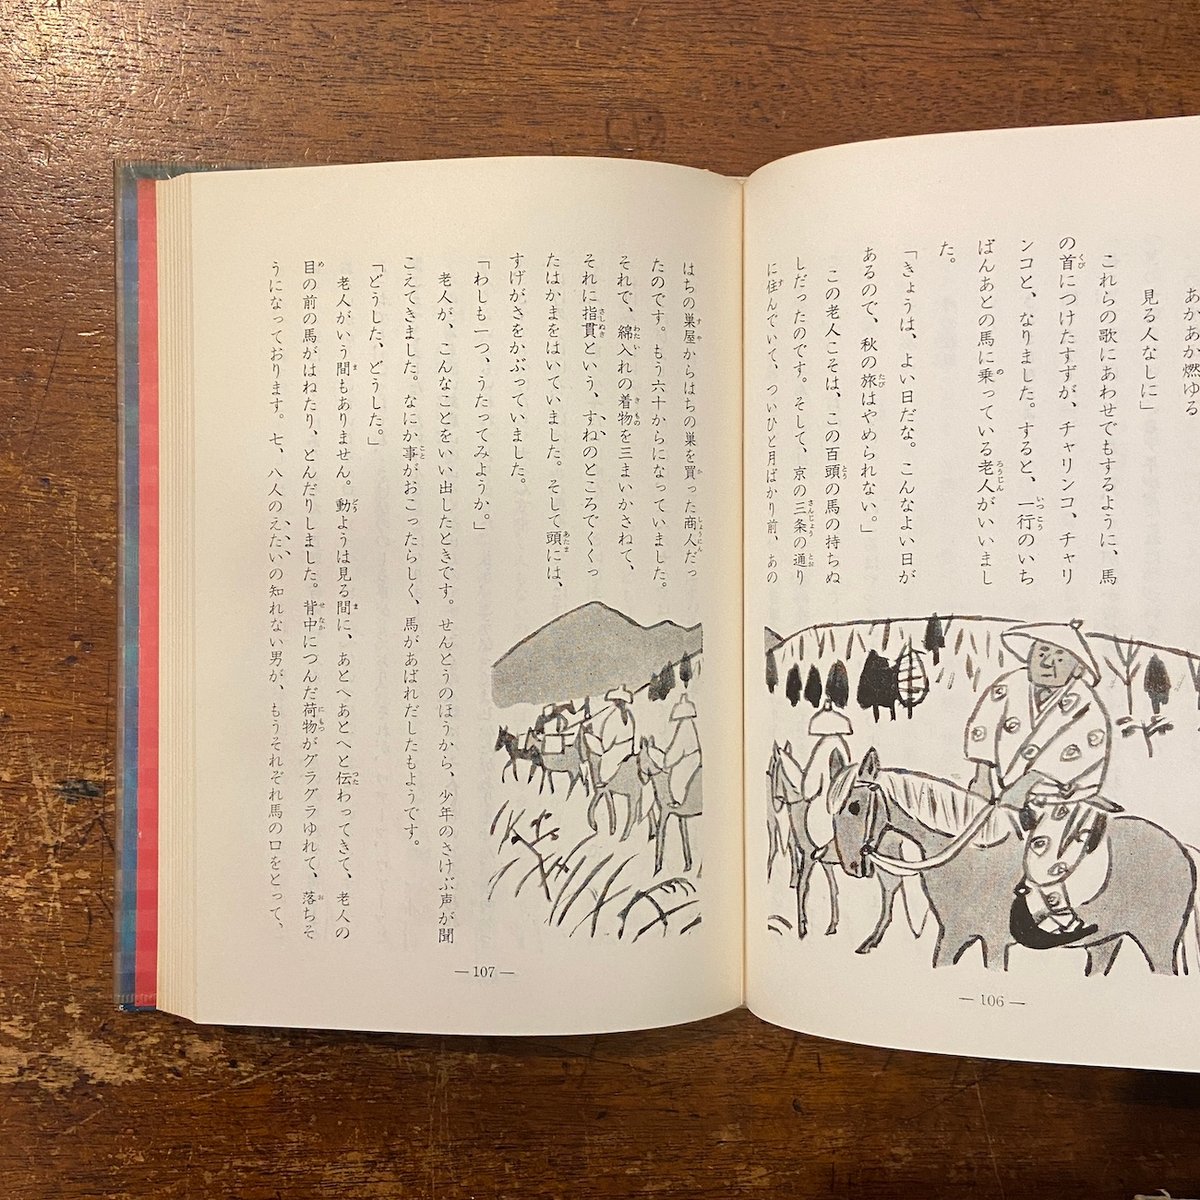 あかあか燃ゆる
見る人なしに」
これらの歌にあわせでもするように、馬
の首につけたすずが、チャリンコ、チャリ
ンコと、なりました。すると、一行のいち
ばんあとの馬に乗っている老人がいいまし
た。
「きょうは、よい日だな。こんなよい日が
あるので、秋の旅はやめられない。」
この老人こそは、この百頭の馬の持ちぬ
しだったのです。そして、京の三条の通り
に住んでいて、ついひと月ばかり前、あの
— 106 —
はちの巣屋からはちの巣を買った商人だっ
たのです。もう六十からになっていました。
それで、綿入れの着物を三まいかさねて、
それに指貫という、すねのところでくくっ
たはかまをはいていました。そして頭には、
すげがさをかぶっていました。
「わしも一つ、うたってみようか。」
老人が、こんなことをいい出したときです。せんとうのほうから、少年のさけぶ声が聞
こえてきました。なにか事がおこったらしく、馬があばれだしたもようです。
「どうした、どうした。」
老人がいう間もありません。動ようは見る間に、あとへあとへと伝わってきて、老人の
目の前の馬がはねたり、とんだりしました。背中につんだ荷物がグラグラゆれて、落ちそ
うになっております。七、八人のえたいの知れない男が、もうそれぞれ馬の口をとって、
— 107 —